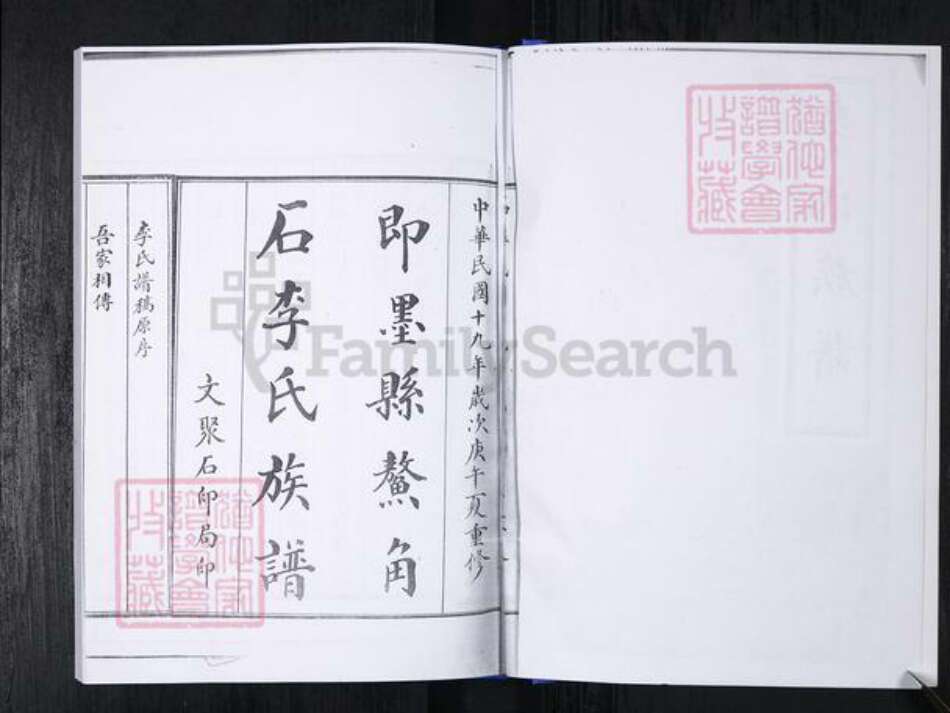 中華民國十九年歲次庚午夏重修
即墨縣鰲角
石李氏族譜
文聚石印局印
李氏譜稿原序
吾家相傳
FamilySearch
猶他家
譜學會
收藏
猶他家
譜學會
收藏